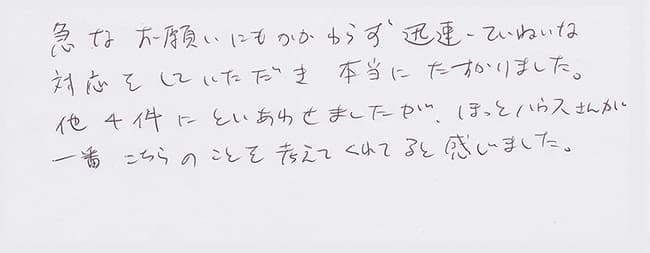 急な お願いにもかかわらず 迅速・ていねいな
対応をしていただき 本当に たすかりました。
他 4件に といあわせましたが、ほっとハウスさんが
一番 こちらの ことを 考えて くれてると 感じました。